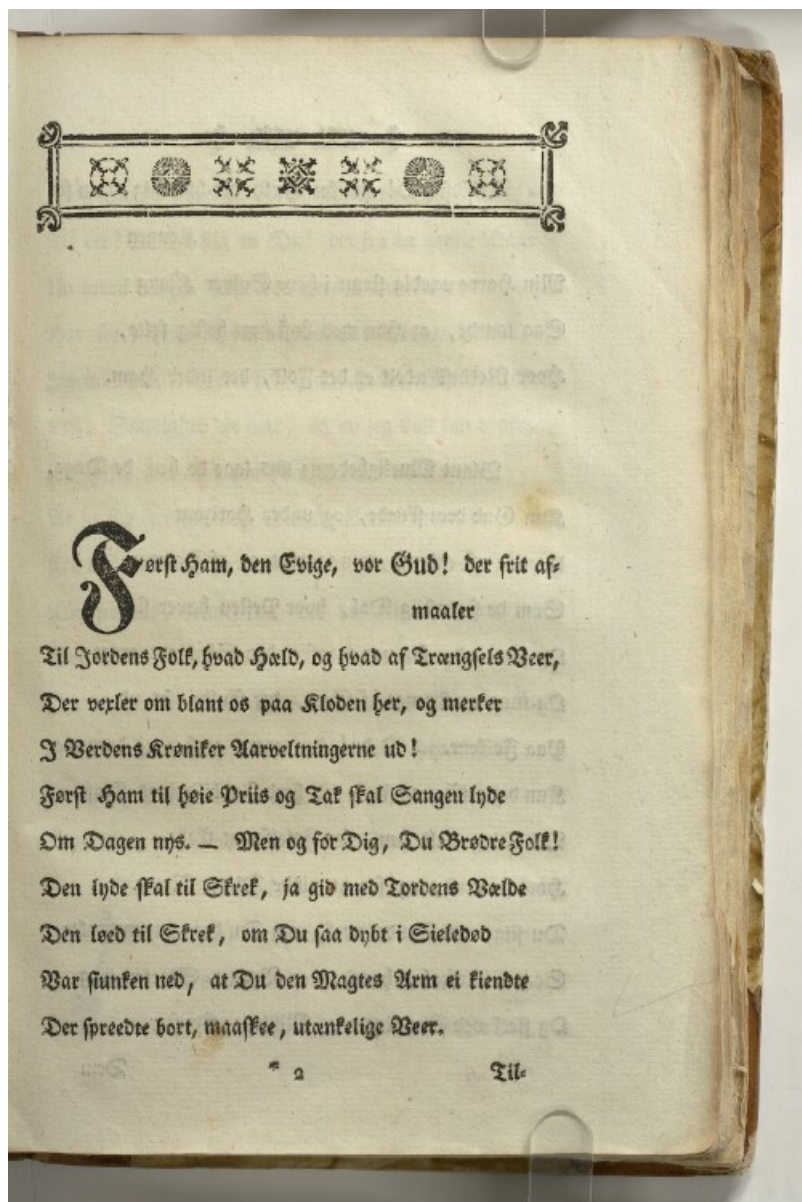 Først Ham, den Evige, vor Gud! der frit af-
maaler
Til Jordens Folk, hvad Hæld, og hvad af Trængsels Veer,
Der vexler om blant os paa Kloden her, og merker
I Verdens Krøniker Aarveltningerne ud!
Først Ham til høie Priis og Tak skal Sangen lyde
Om Dagen nys. — Men og for Dig, Du Brødre Folk!
Den lyde skal til Skrek, ja gid med Tordens Vælde
Den løed til Skrek, om Du saa dybt i Sieledød
Var siunken ned, at Du den Magtes Arm ei kiendte
Der spreedte bort, maaskee, utænkelige Veer.
* 2 Til-